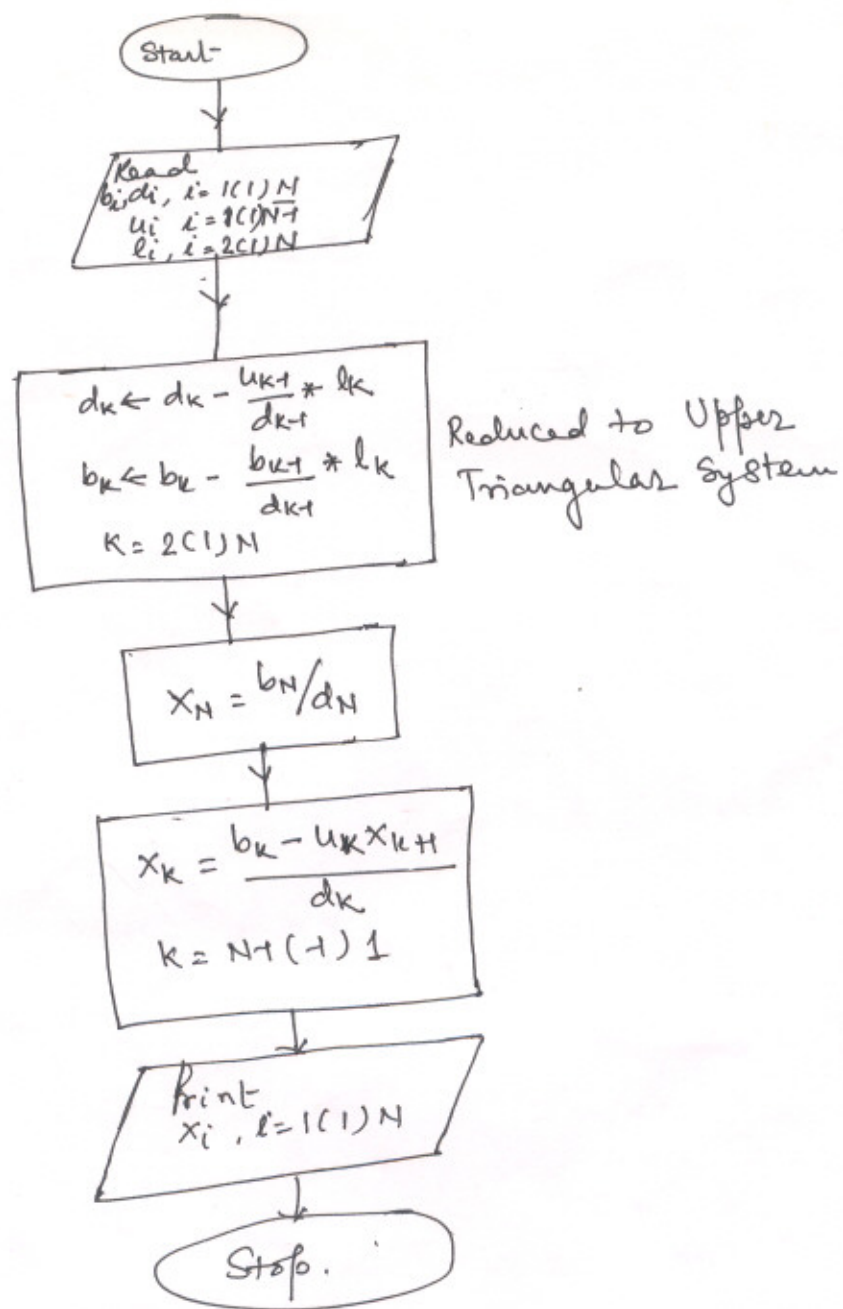 Start
Read
bi, di, i = 1(1) N
ui i = 1(1)N-1
li, i = 2(1) N
dk ← dk - uk-1/dk-1 * lk
bk ← bk - bk-1/dk-1 * lk
K = 2(1)N
Reduced to Upper
Triangular System
XN = bN/dN
Xk = (bk - uk Xk+1)/dk
K = N-1 (-1) 1
Print
xi, i = 1(1) N
Stop.